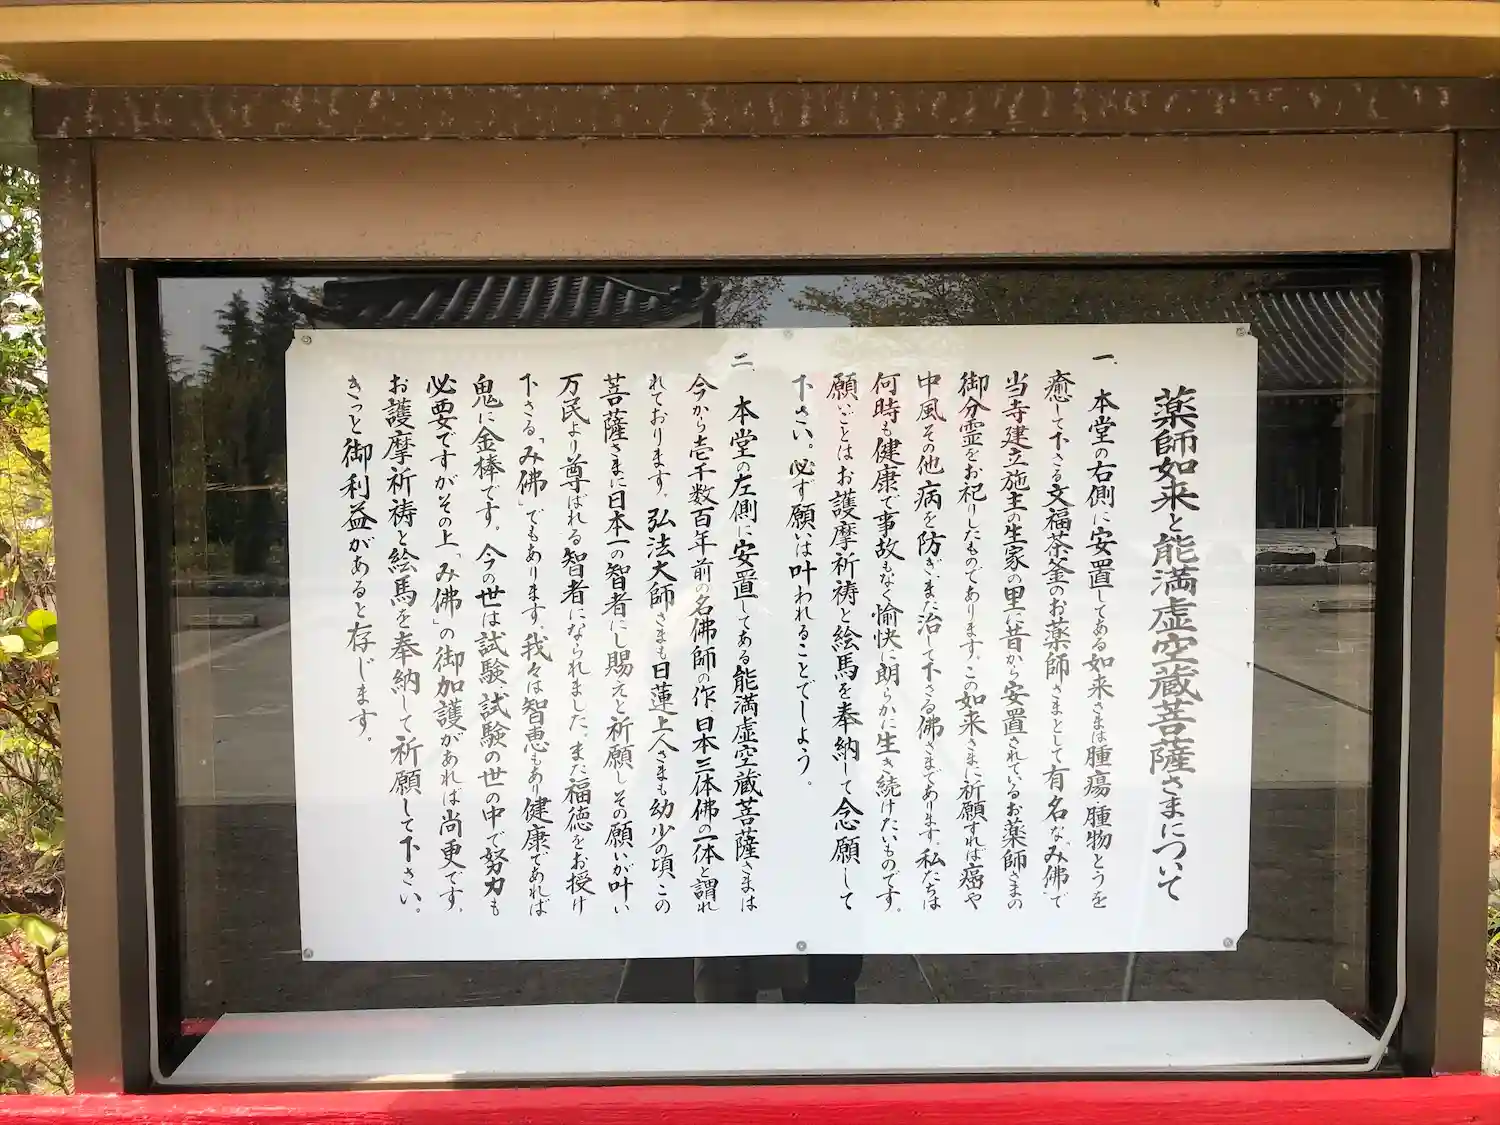 薬師如来と能満虚空蔵菩薩さまについて
一、本堂の右側に安置してある如来さまは腫瘍、腫物とうを
癒して下さる文福茶釜のお薬師さまとして有名な「み佛」で
当寺建立施主の生家の里に昔から安置されているお薬師さまの
御分霊をお祀りしたものであります。この如来さまに祈願すれば癌や
中風その他病を防ぎ、また治して下さる佛さまであります。私たちは
何時も健康で事故もなく愉快に朗らかに生き続けたいものです。
願いごとはお護摩祈祷と絵馬を奉納して念願して
下さい。必ず願いは叶われることでしょう。
二、本堂の左側に安置してある能満虚空蔵菩薩さまは
今から壱千数百年前の名佛師の作、日本三体佛の一体と謂れ
れております。弘法大師さまも日蓮上人さまも幼少の頃、この
菩薩さまに日本一の智者にし賜えと祈願し、その願いが叶い
万民より尊ばれる智者になられました。また福徳をお授け
下さる「み佛」でもあります。我々は智恵もあり健康であれば
鬼に金棒です。今の世は試験、試験の世の中で努力も
必要ですがその上、「み佛」の御加護があれば尚更です。
お護摩祈祷と絵馬を奉納して祈願して下さい。
きっと御利益があると存じます。